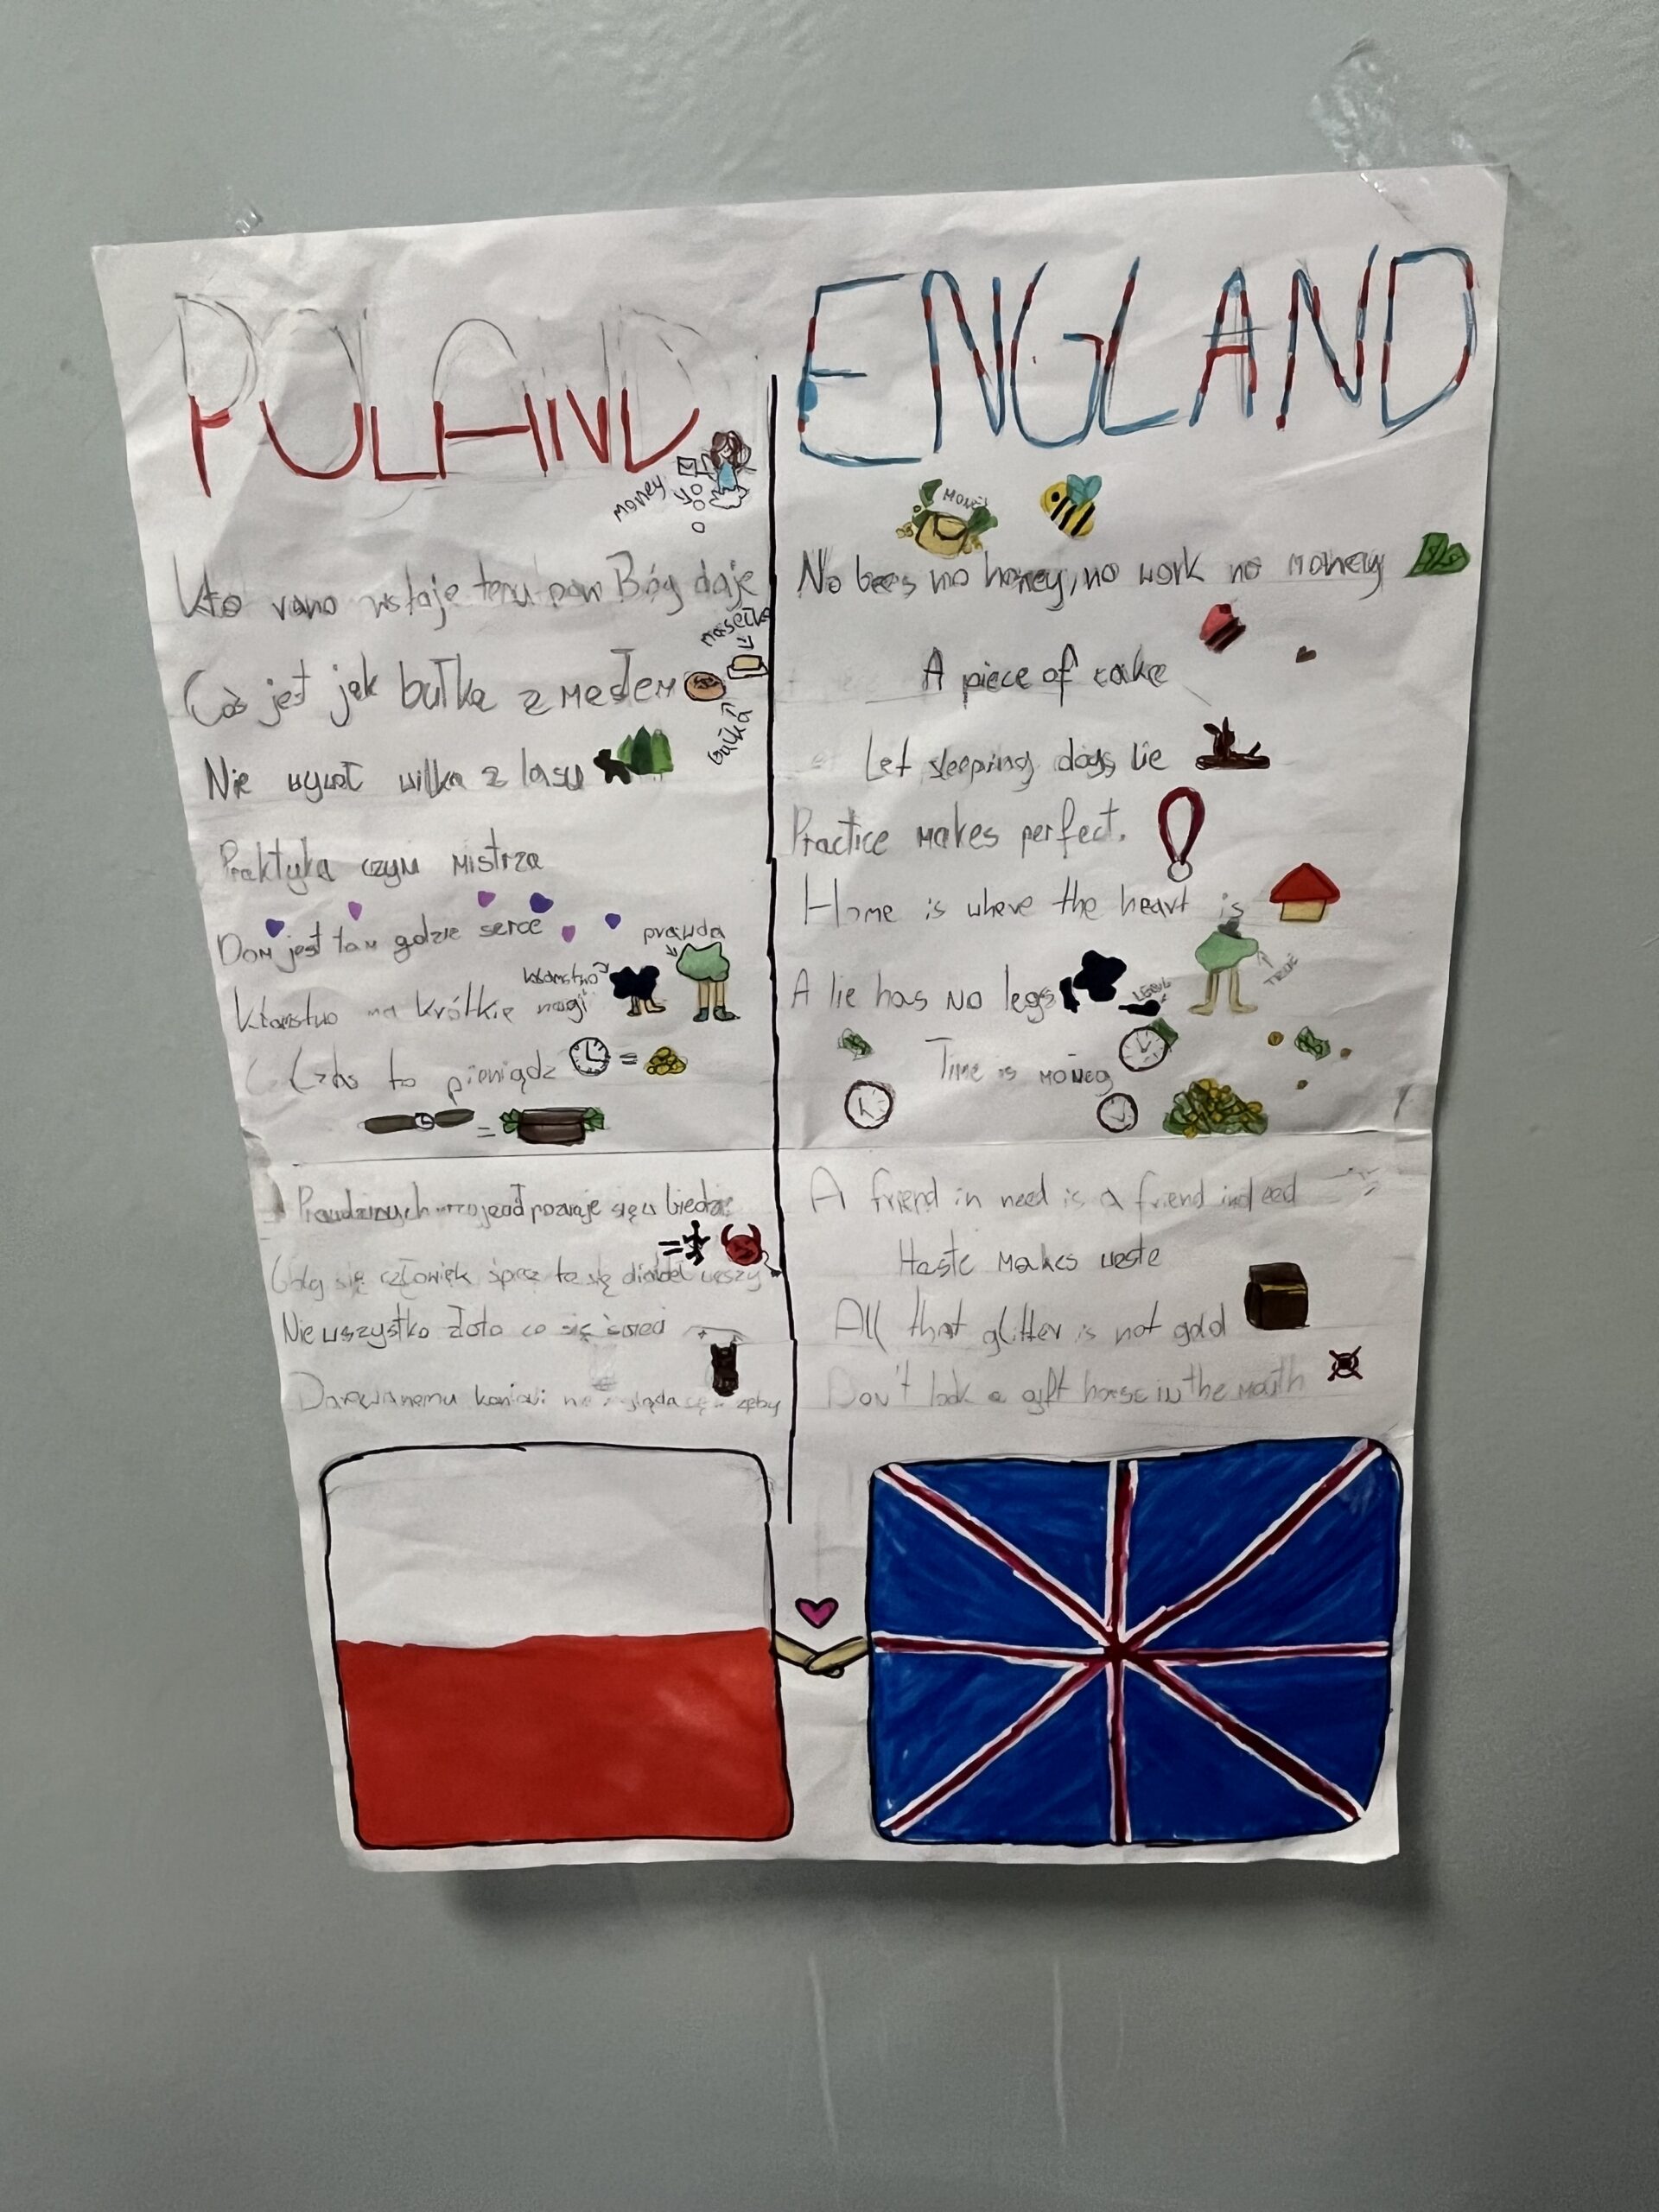 POLAND
money
Kto rano wstaje temu pan Bóg daje
masełko
Coś jest jak bułka z masłem
bułka
Nie wywoł wilka z lasu
Praktyka czyni mistrza
Dom jest tam gdzie serce
prawda
kłamstwo
Kłamstwo ma krótkie nogi
Czas to pieniądz
=
=
Prawdziwych przyjaciół poznaje się w biedzie
=
się człowiek śpieszy to się diabeł cieszy
Nie wszystko złoto co się świeci
Darowanemu koniowi nie zagląda się w zęby
ENGLAND
MONEY
No bees no honey, no work no money
A piece of cake
Let sleeping dogs lie
Practice makes perfect.
Home is where the heart is
A lie has no legs
TRUE
Time is money
A friend in need is a friend indeed
Haste makes weste
All that glitter is not gold
Don't look a gift horse in the mouth